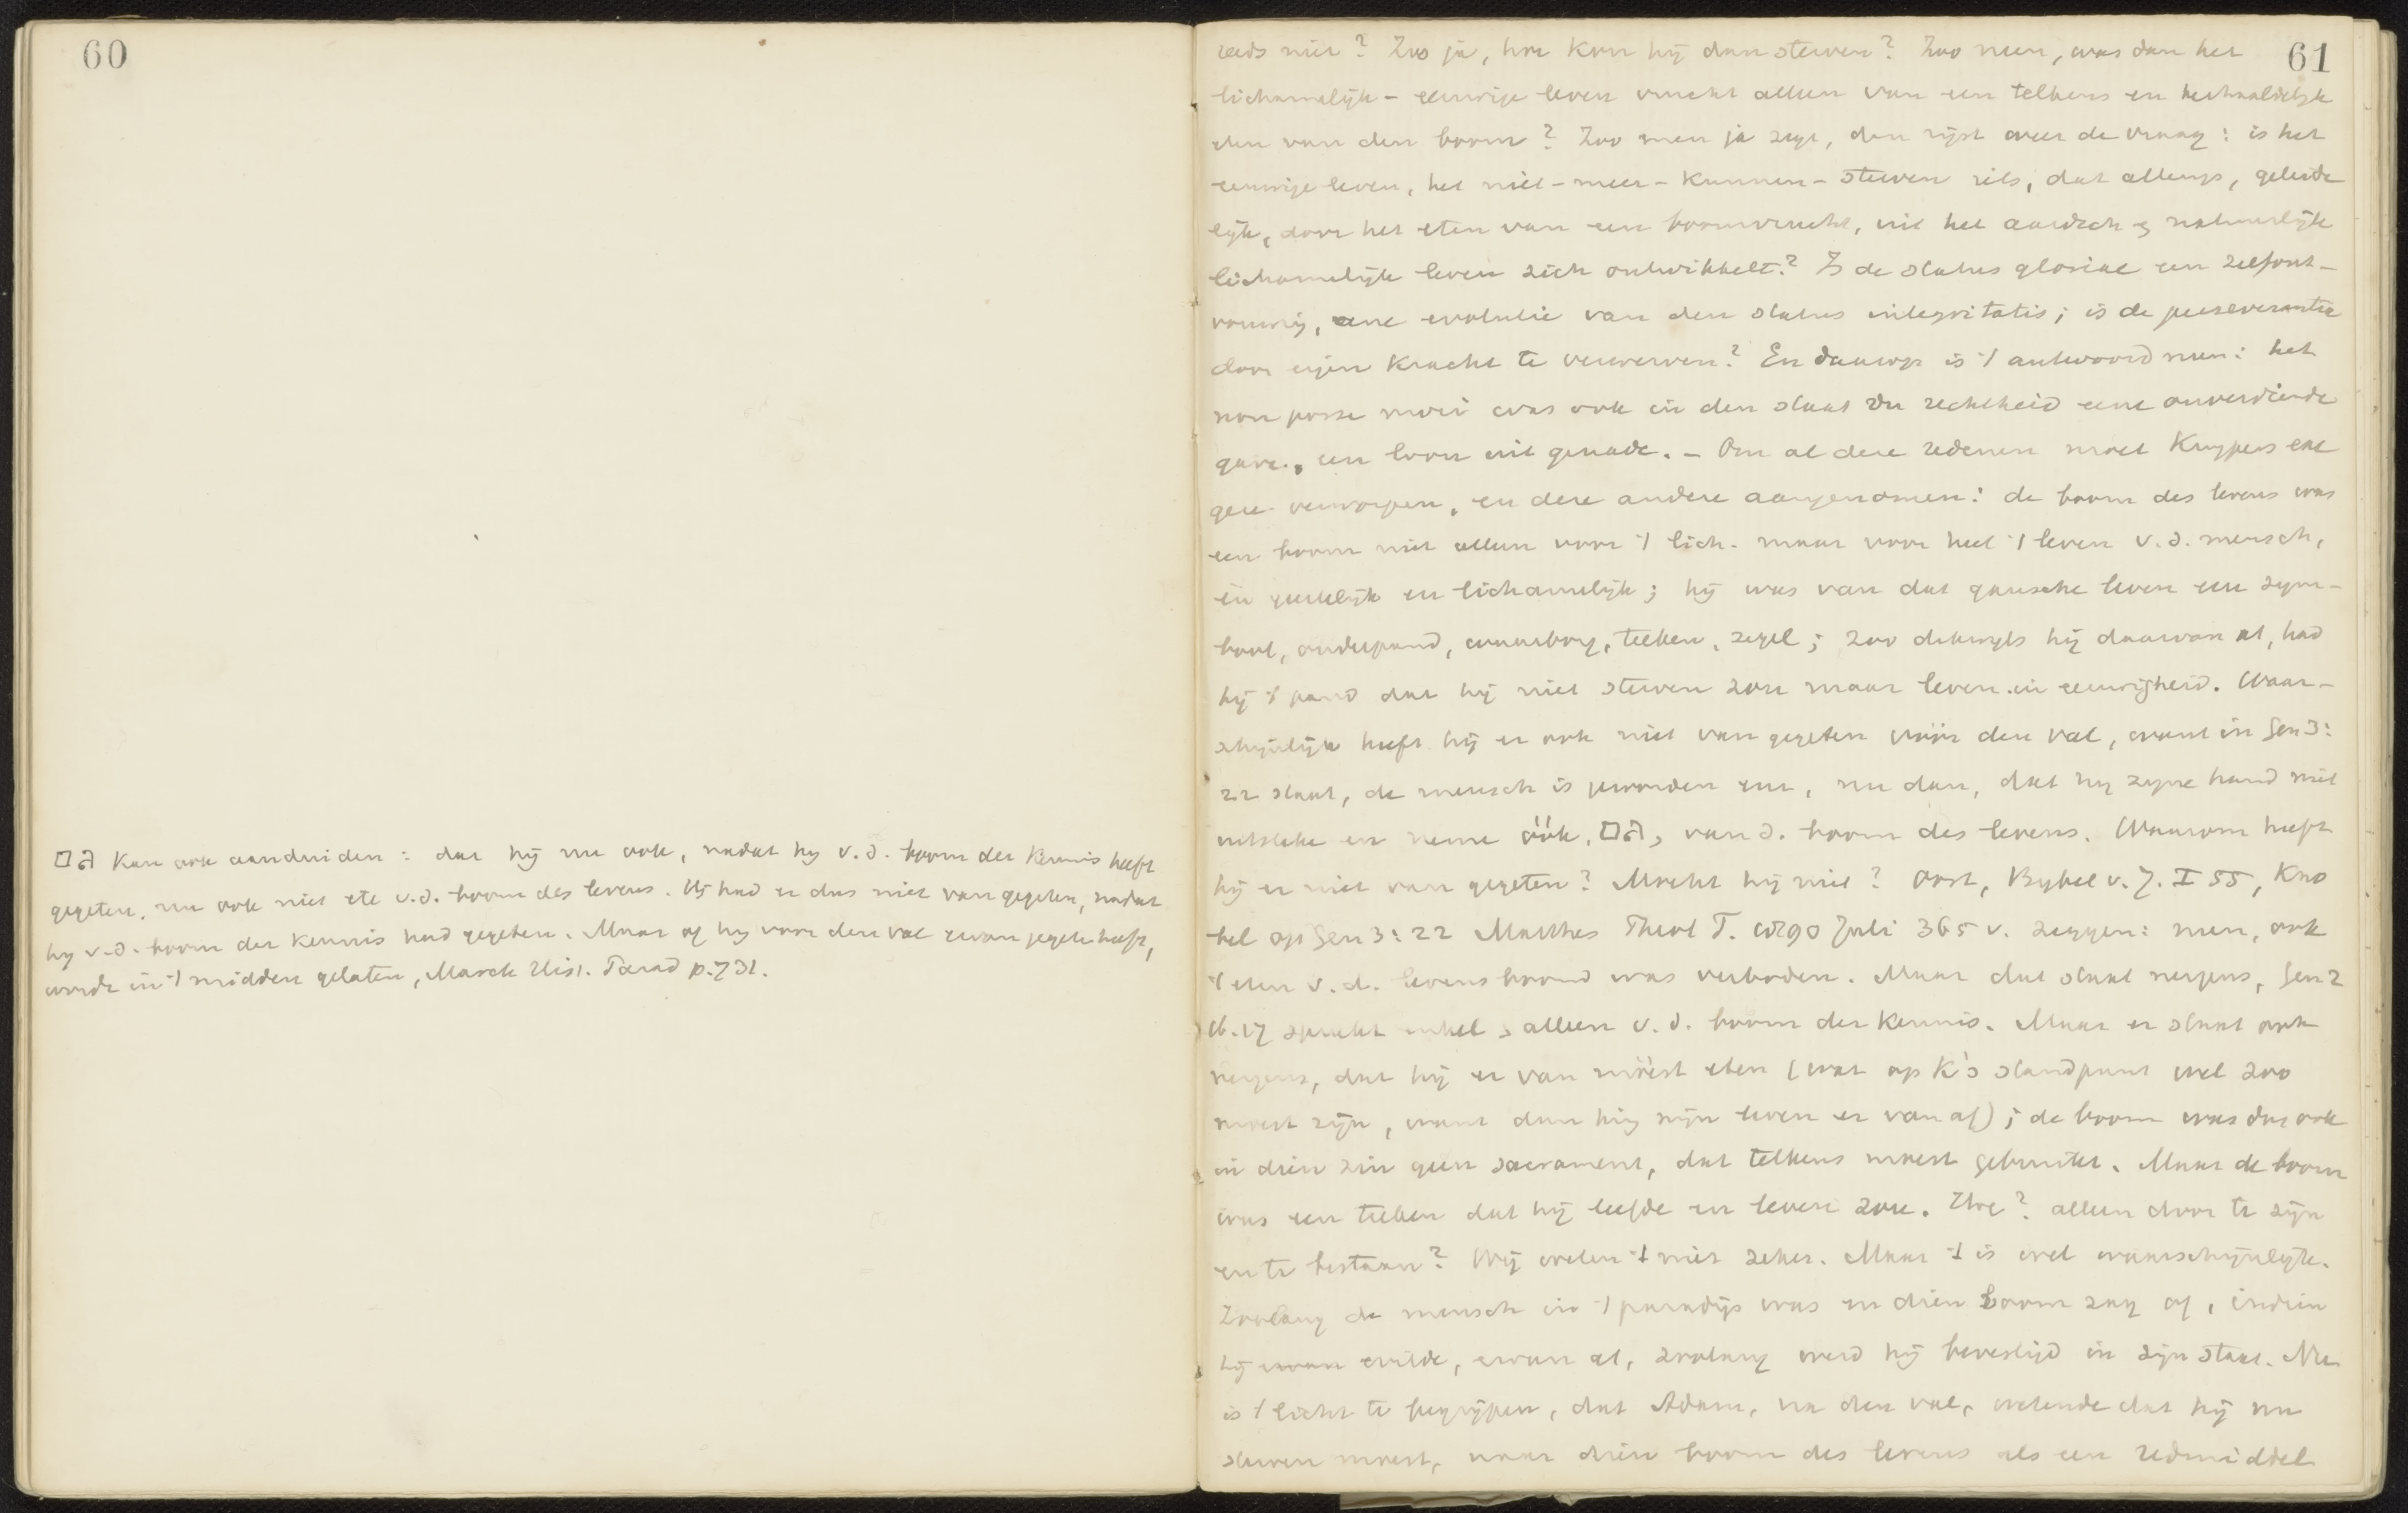 60
גם kan ook aanduiden: dat hij nu ook, nadat hij v.d. boom der kennis heeft
gegeten, nu ook niet ete v.d. boom des levens. Hij had er dus niet van gegeten, nadat
hij v.d. boom der kennis had gegeten. Maar of hij voor den val ervan gegeten heeft,
wordt in 't midden gelaten, Marck Hist. Parad p. 731.
61
reeds niet? Zoo ja, hoe kon hij dan sterven? Zoo neen, was dan het
lichamelijk-eeuwige leven vrucht alleen van een telkens en herhaaldelijk
eten van den boom? Zoo men ja zegt, dan rijst weer de vraag: is het
eeuwige leven, het niet-meer-kunnen-sterven iets, dat allengs, geleide
lijk, door het eten van een boomvrucht, uit het aardsch & natuurlijk
lichamelijk leven zich ontwikkelt? Is de status gloriae een zelfont-
vouwing, eene evolutie van den status integritatis; is de perseverantia
door eigen kracht te verwerven? En daarop is 't antwoord neen: het
non posse mori was ook in den staat der rechtheid eene onverdiende
gave, een loon uit genade. – Om al deze redenen moet Kuypers exe
gese verworpen, en deze andere aangenomen: de boom des levens was
een boom niet alleen voor 't lich. maar voor heel 't leven v.d. mensch,
én geestelijk én lichamelijk; hij was van dat gansche leven een sym-
bool, onderpand, waarborg, teeken, zegel; zoo dikwijls hij daarvan at, had
hij 't pand dat hij niet sterven zou maar leven in eeuwigheid. Waar-
schijnlijk heeft hij er ook niet van gegeten vóór den val, want in Gen 3:
22 staat, de mensch is geworden enz, nu dan, dat hij zijne hand niet
uitsteke en neme óók, גם, van d. boom des levens. Waarom heeft
hij er niet van gegeten? Mocht hij niet? Oort, Bijbel v. J. I 55, Kno
bel op Gen 3:22 Matthes Theol T. 1890 Juli 365 v. zeggen: neen, ook
't eten v.d. levensboom was verboden. Maar dat staat nergens, Gen 2
16.17 spreekt enkel & alleen v.d. boom der kennis. Maar er staat ook
nergens, dat hij er van móést eten (wat op K's standpunt wel zoo
moest zijn, want dan hing zijn leven er van af); de boom was dus ook
in dien zin geen sacrament, dat telkens moest gebruikt. Maar de boom
was een teeken dat hij leefde en leven zou. Hoe? alleen door te zijn
en te bestaan? Wij weten 't niet zeker. Maar 't is wel waarschijnlijk.
Zoolang de mensch in 't paradijs was en dien boom zag of, indien
hij wilde, ervan at, zoolang werd hij bevestigd in zijn staat. Nu
is 't licht te begrijpen, dat Adam, na den val, wetende dat hij nu
sterven moest, naar dien boom des levens als een redmiddel